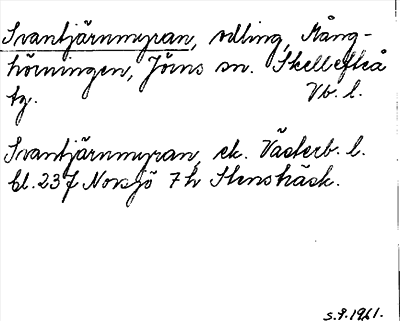 Svantjärnmyran, odling, Mång-
hörningen, Jörns sn. Skellefteå
tg. Vb. l.
Svantjärnmyran, ek. Västerb. l.
bl. 237 Norsjö 7h Stensträsk.
S.P. 1961.